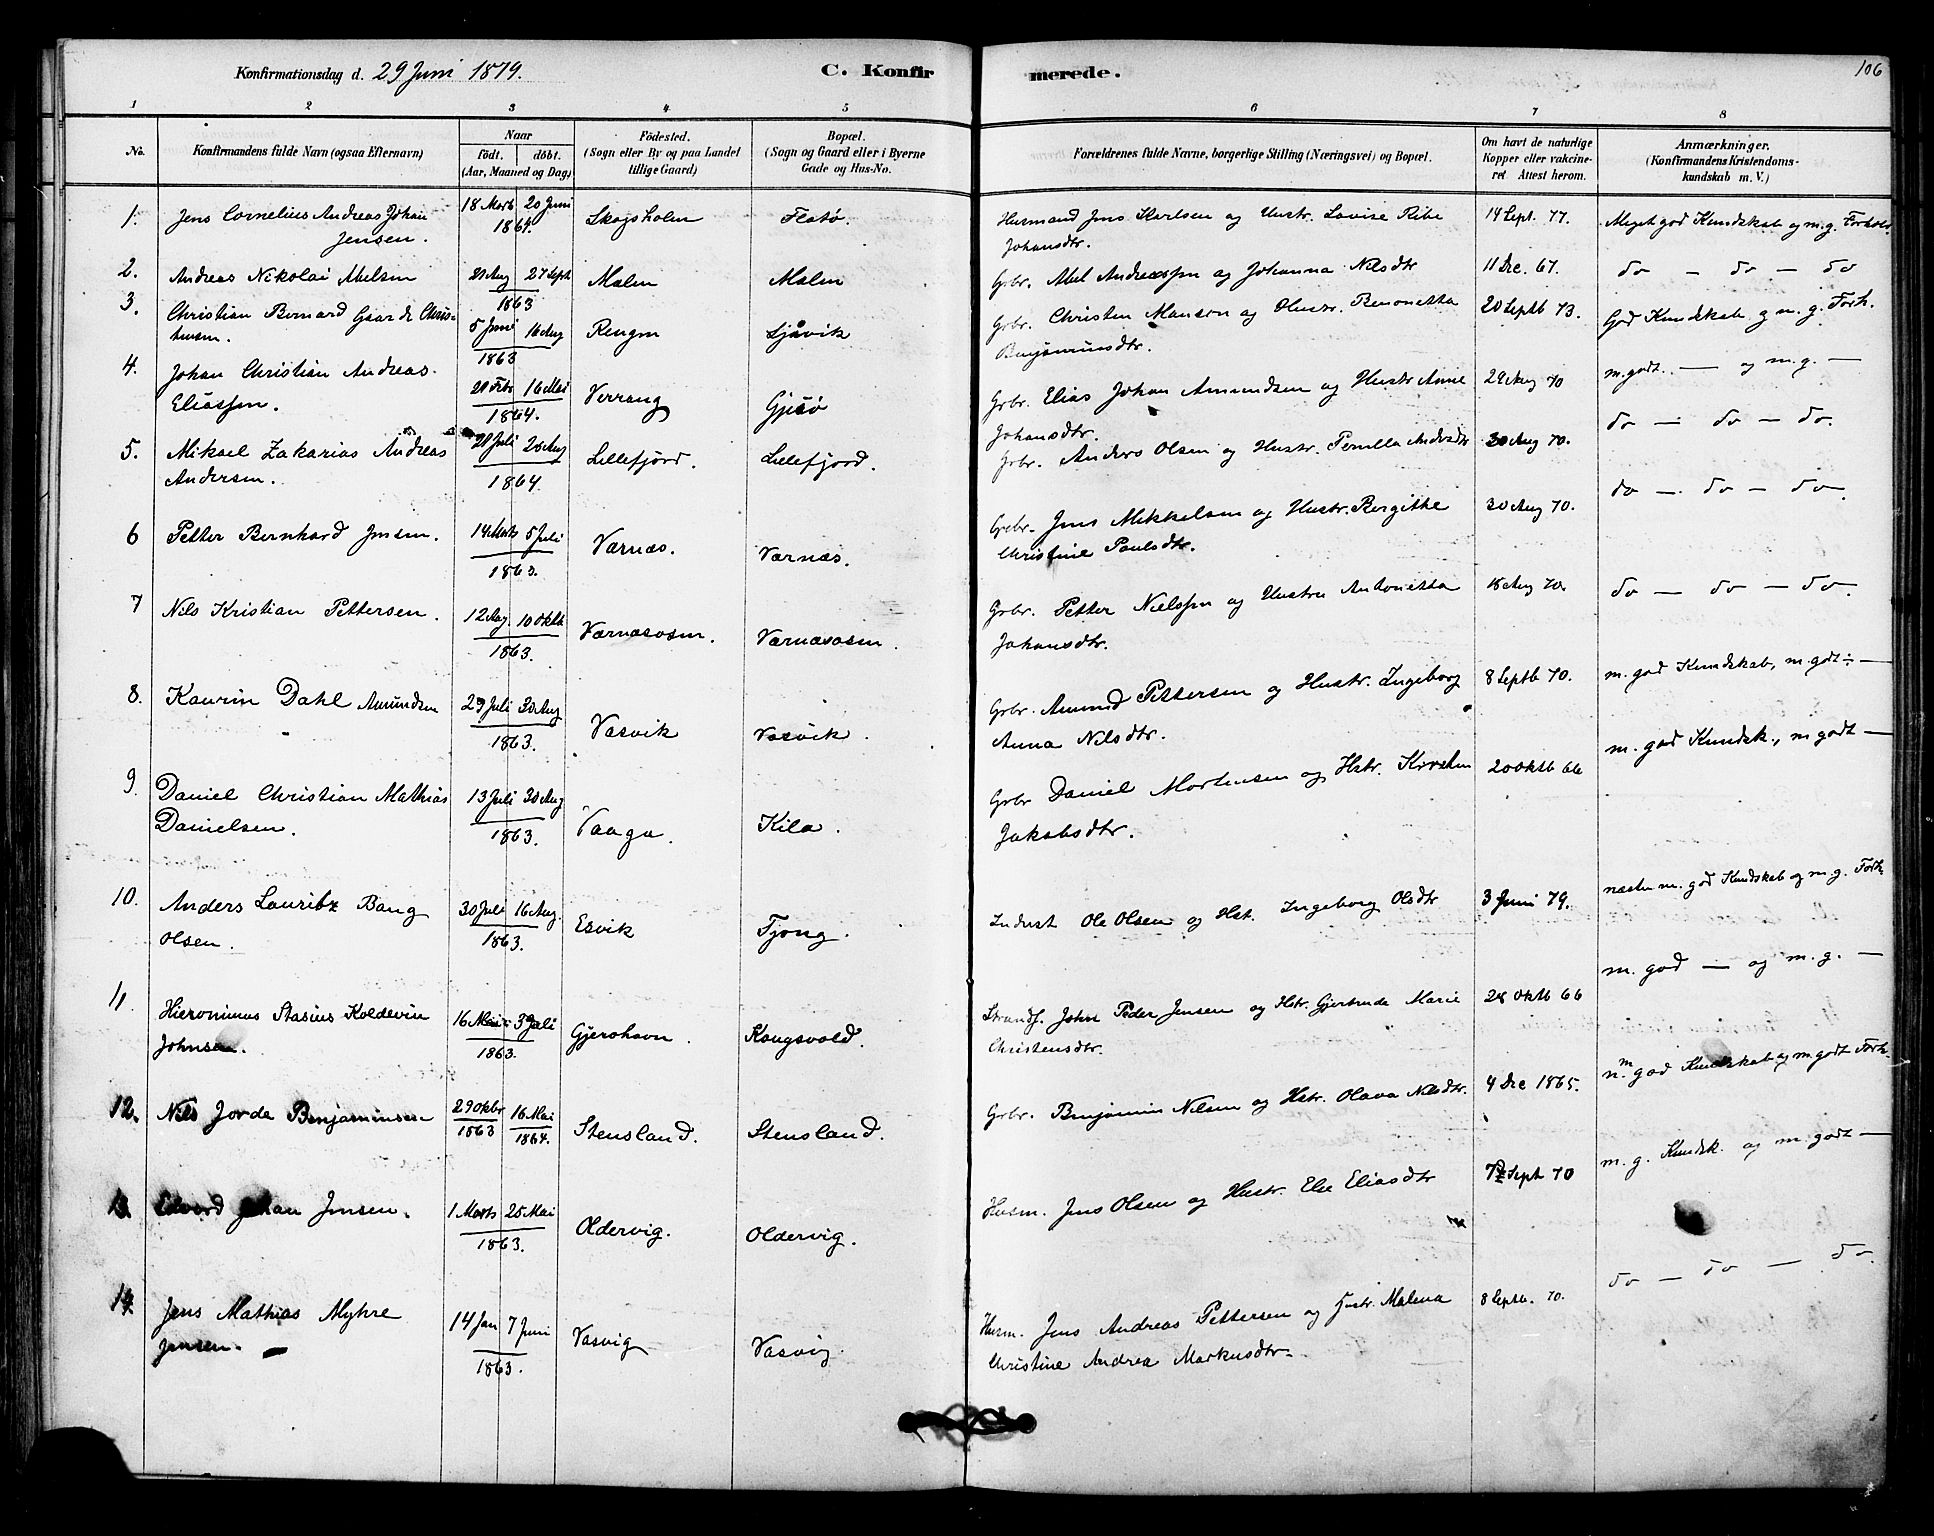 Konfirmationsdag d. 29 Juni 1879.
C. Konfirmerede.
106
1 2 3 4 5 6 7 8
No.
Konfirmandens fulde Navn (ogsaa Efternavn)
Naar
født. døbt.
(Aar, Maaned og Dag)
Fødested.
(Sogn eller By og paa Landet
tillige Gaard)
Bopæl.
(Sogn og Gaard eller i Byerne
Gade og Hus-No.
Forældrenes fulde Navne, borgerlige Stilling (Næringsvei) og Bopæl.
Om havt de naturlige
Kopper eller vakcine-
ret Attest herom.
Anmærkninger.
(Konfirmandens Kristendoms-
kundskab m. V.)
1. Jens Cornelius Andreas Johan
Jensen.
18 Marts 20 Juni
1864.
Skogsholm
Flatø.
Husmand Jens Karlsen og Hustr. Lovise Ribe
Johansdtr.
14 Sept. 77.
Meget god Kundskab og m. g. Forhold.
2. Andreas Nikolai Abelsen
21 Aug 27 Sept
1863
Malm
Malm
Grbr. Abel Andreassen og Johanna Nilsdtr
11 Dec. 67.
do — do — do
3. Christian Bernard Gaarde Chris-
tensen.
5 Juni 16 Aug
1863
Rengen
Sjåvik
Grbr. Christen Monsen og Hustr. Benonetta
Benjaminsdtr.
20 Septb 73.
God Kundskab og m. g. Forh.
4. Johan Christian Andreas
Eliassen.
21 Febr 16 Mai
1864.
Verrang
Gjesø
Grbr. Elias Johan Amundsen og Hustr Anne
Johansdtr.
29 Aug 70
m. godt. — og m. g. —
5. Mikael Zakarias Andreas
Andersen.
21 Juli 28 Aug
1864
Lillefjord.
Lillefjord.
Grbr. Anders Olsen og Hustr. Pernilla Andersdtr
30 Aug 70.
do — do — do.
6 Petter Bernhard Jensen.
14 Marts 5 Juli
1863.
Værnæs.
Værnæs.
Grbr. Jens Mikkelsen og Hustr. Bergithe
Christine Paulsdtr.
30 Aug 70.
do — do — do
7 Nils Kristian Pettersen.
12 Aug. 10 Oktb
1863.
Værnæsosen.
Værnæsosen.
Grbr. Petter Nielssen og Hustru Antonetta
Johansdtr.
18 Aug 70.
do — do — do.
8. Kaurin Dahl Amundsen
29 Juli 30 Aug
1863.
Vasvik
Vasvik.
Grbr. Amund Pettersen og Hustr. Ingeborg
Anna Nilsdtr.
8 Septb 70.
m. god Kundskab, m. godt —
9. Daniel Christian Mathias
Danielsen.
13 Juli 30 Aug
1863.
Vaaga.
Kila.
Grbr Daniel Mortensen og Hstr. Kirsten
Jakobsdtr.
20 Oktb 66
m. god Kundsk., m godt —
10. Anders Lauritz Bang
Olsen.
30 Juli 16 Aug.
1863.
Esvik
Tjong.
Inderst Ole Olsen og Hst. Ingeborg Olsdtr
3 Juni 79.
næsten m. god Kundskab og m. g. Forh.
11. Hieronimus Stasius Koldevin
Johnsen.
16 Mai 3 Juli
1863.
Gjerohavn.
Kongsvold.
Strands. John Peder Jensen og Hstr. Gjertrude Marie
Christensdtr.
28 Oktb 66
m. god — og m. g. —
12. Nils Jorde Benjaminsen
29 Oktbr 1863
16 Mai 1864.
Stensland.
Stensland.
Grbr. Benjamin Nilsen og Hstr. Olava Nilsdtr.
4 Dec 1865.
n. m god Kundskab og m. godt Forh.
13. Edvard Johan Jensen.
1 Marts 25 Mai
1863.
Oldervig.
Oldervig.
Husm. Jens Olsen og Hustr. Else Eliasdtr
7 Sept 70
m. g. Kundsk. og m. godt —
14. Jens Mathias Myhre
Jensen.
14 Jan 7 Juni
1863.
Vasvig
Vasvig.
Husm. Jens Andreas Pettersen og Hustr. Malena
Christine Andrea Markusdtr.
8 Septb. 70.
do — do — do.